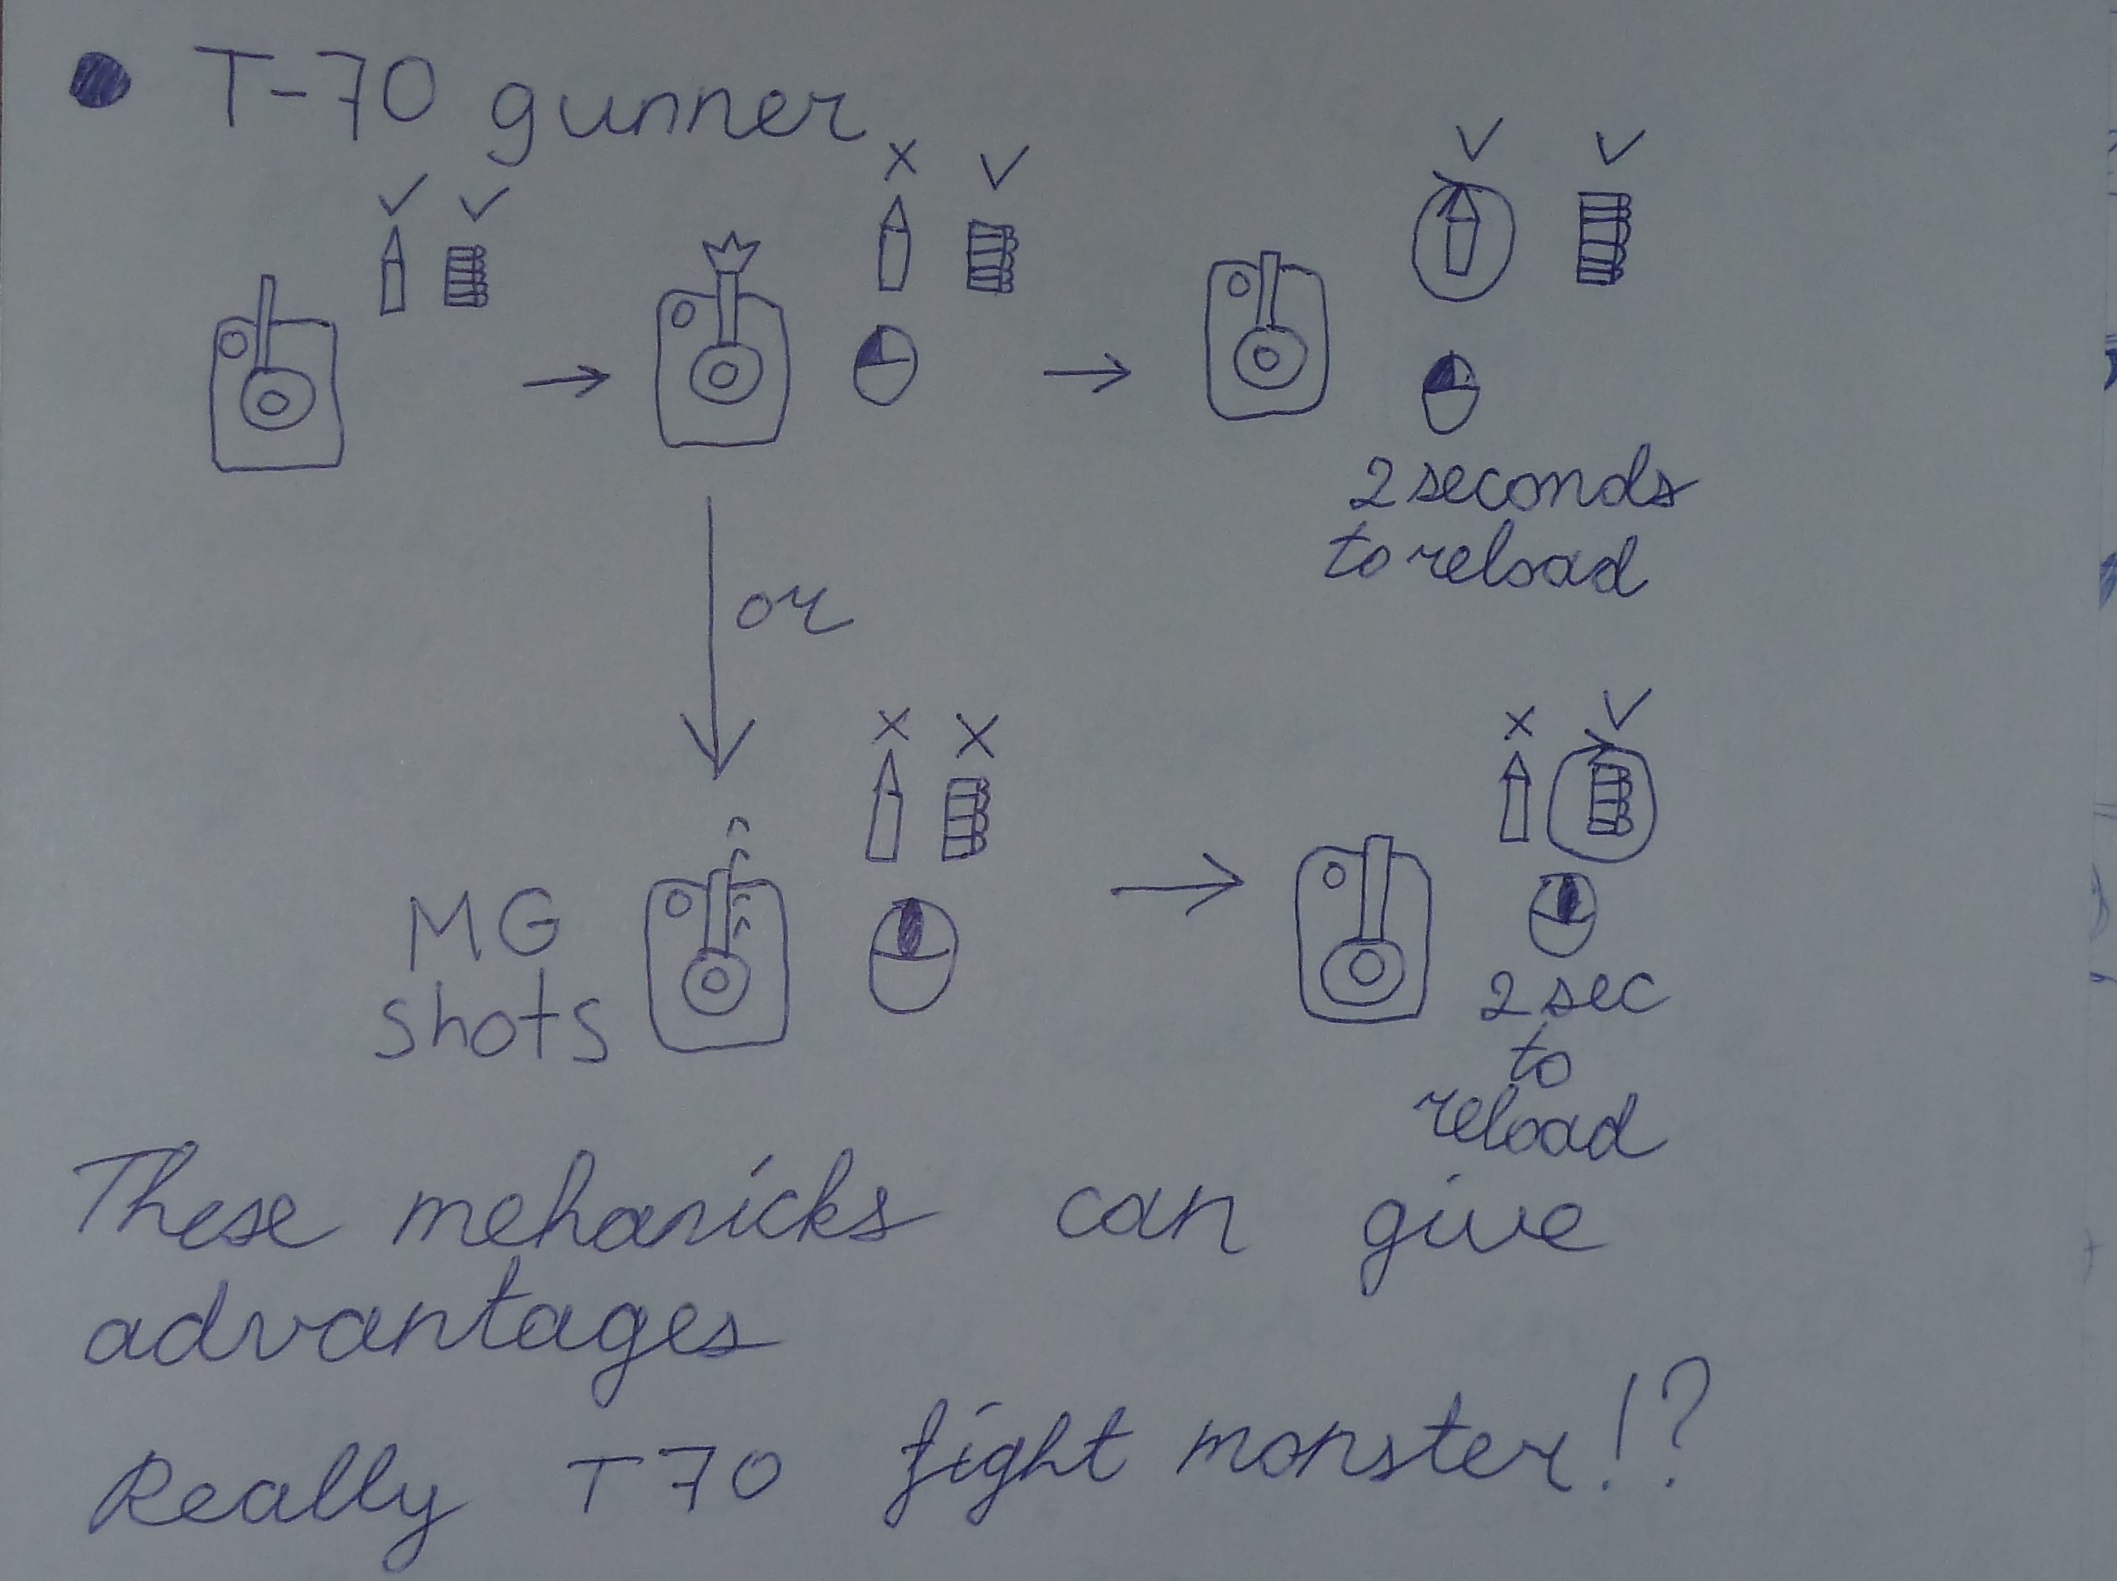 T-70 gunner
2 seconds
to reload
or
MG
shots
2 sec
to
reload
These mehanicks can give
advantages
Really T70 fight monster!?